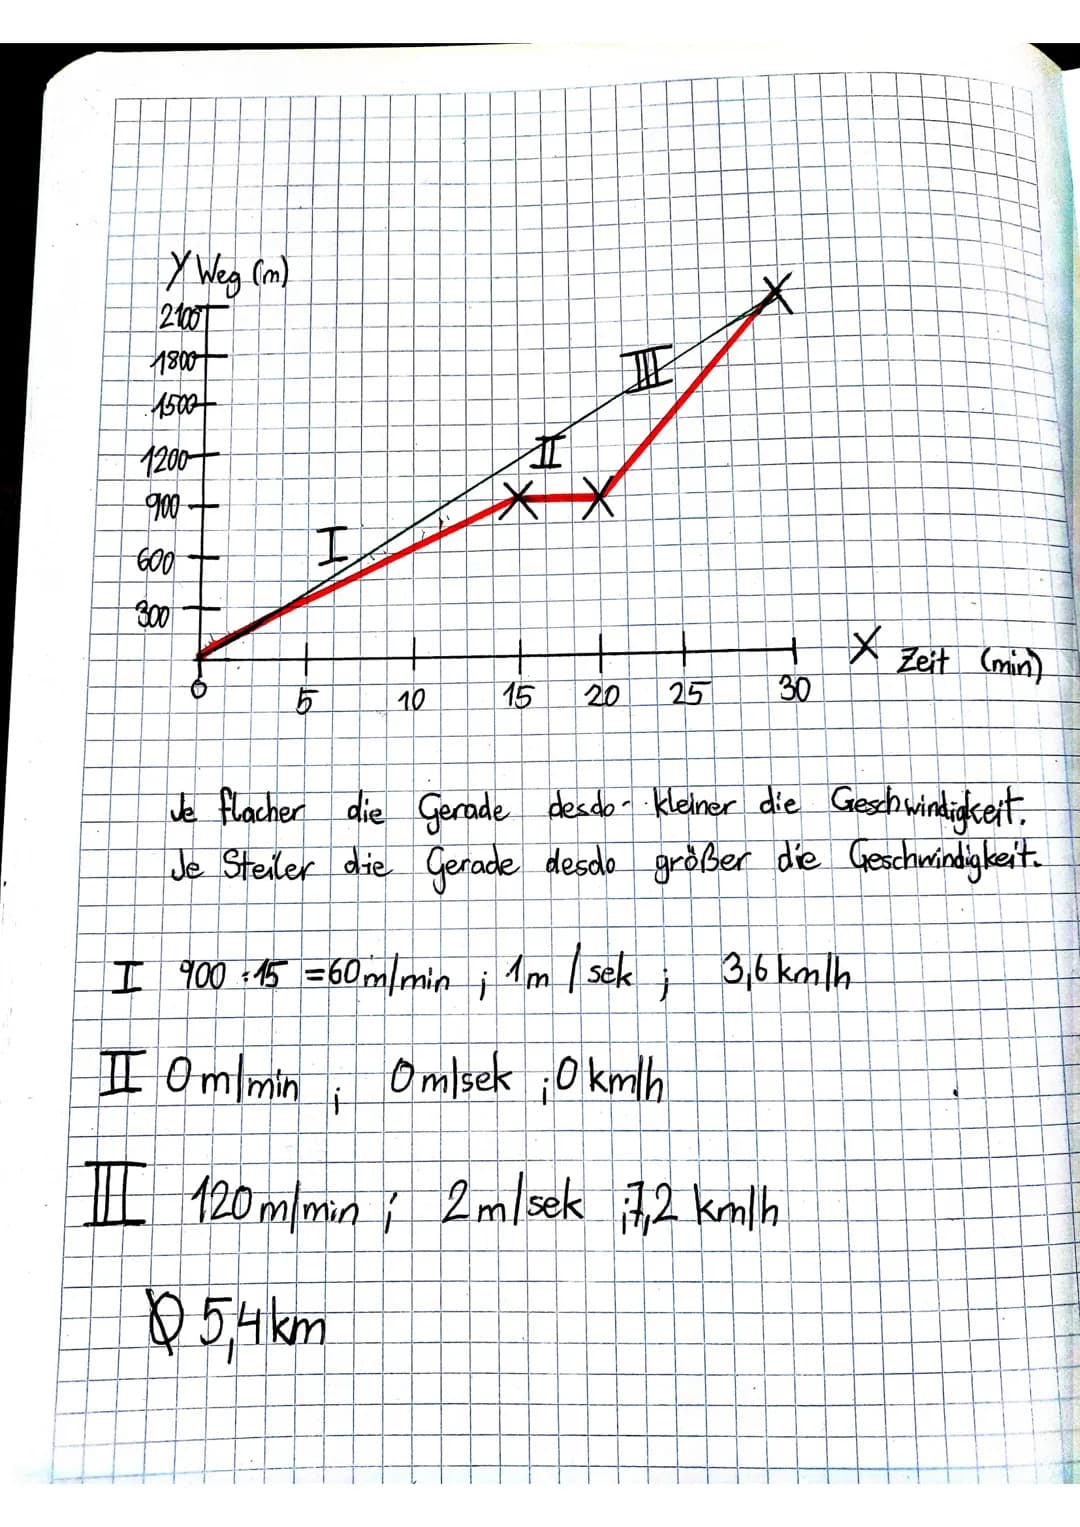 Y Weg (m)
2100
1800
1500
1200
900
600
300
I
II
III
0 5 10 15 20 25 30
X Zeit (min)
Je flacher die Gerade desdo kleiner die Geschwindigkeit.
Je Steiler die Gerade desdo größer die Geschwindigkeit.
I 900 : 15 = 60m/min ; 1m / sek ; 3,6 km/h
II 0m/min ; 0m/sek ; 0 km/h
III 120m/min ; 2m/sek ; 7,2 km/h
Ø 5,4km